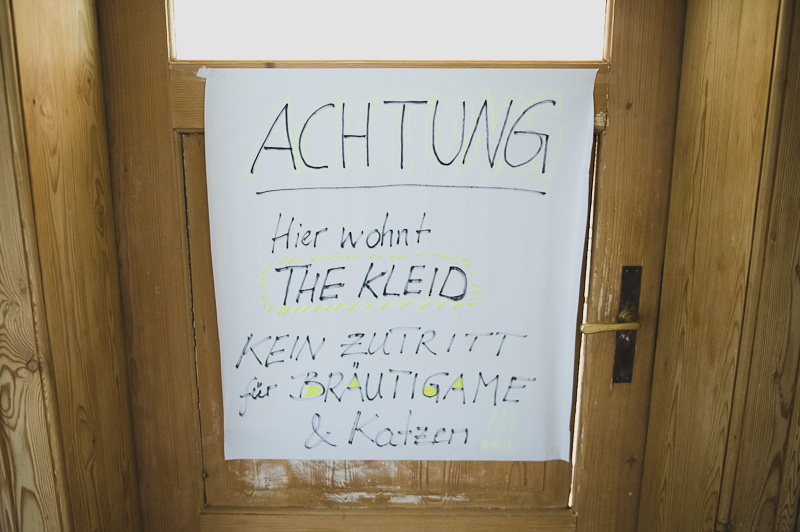 ACHTUNG
Hier wohnt
THE KLEID
KEIN ZUTRITT
für BRÄUTIGAME
& Katzen !!